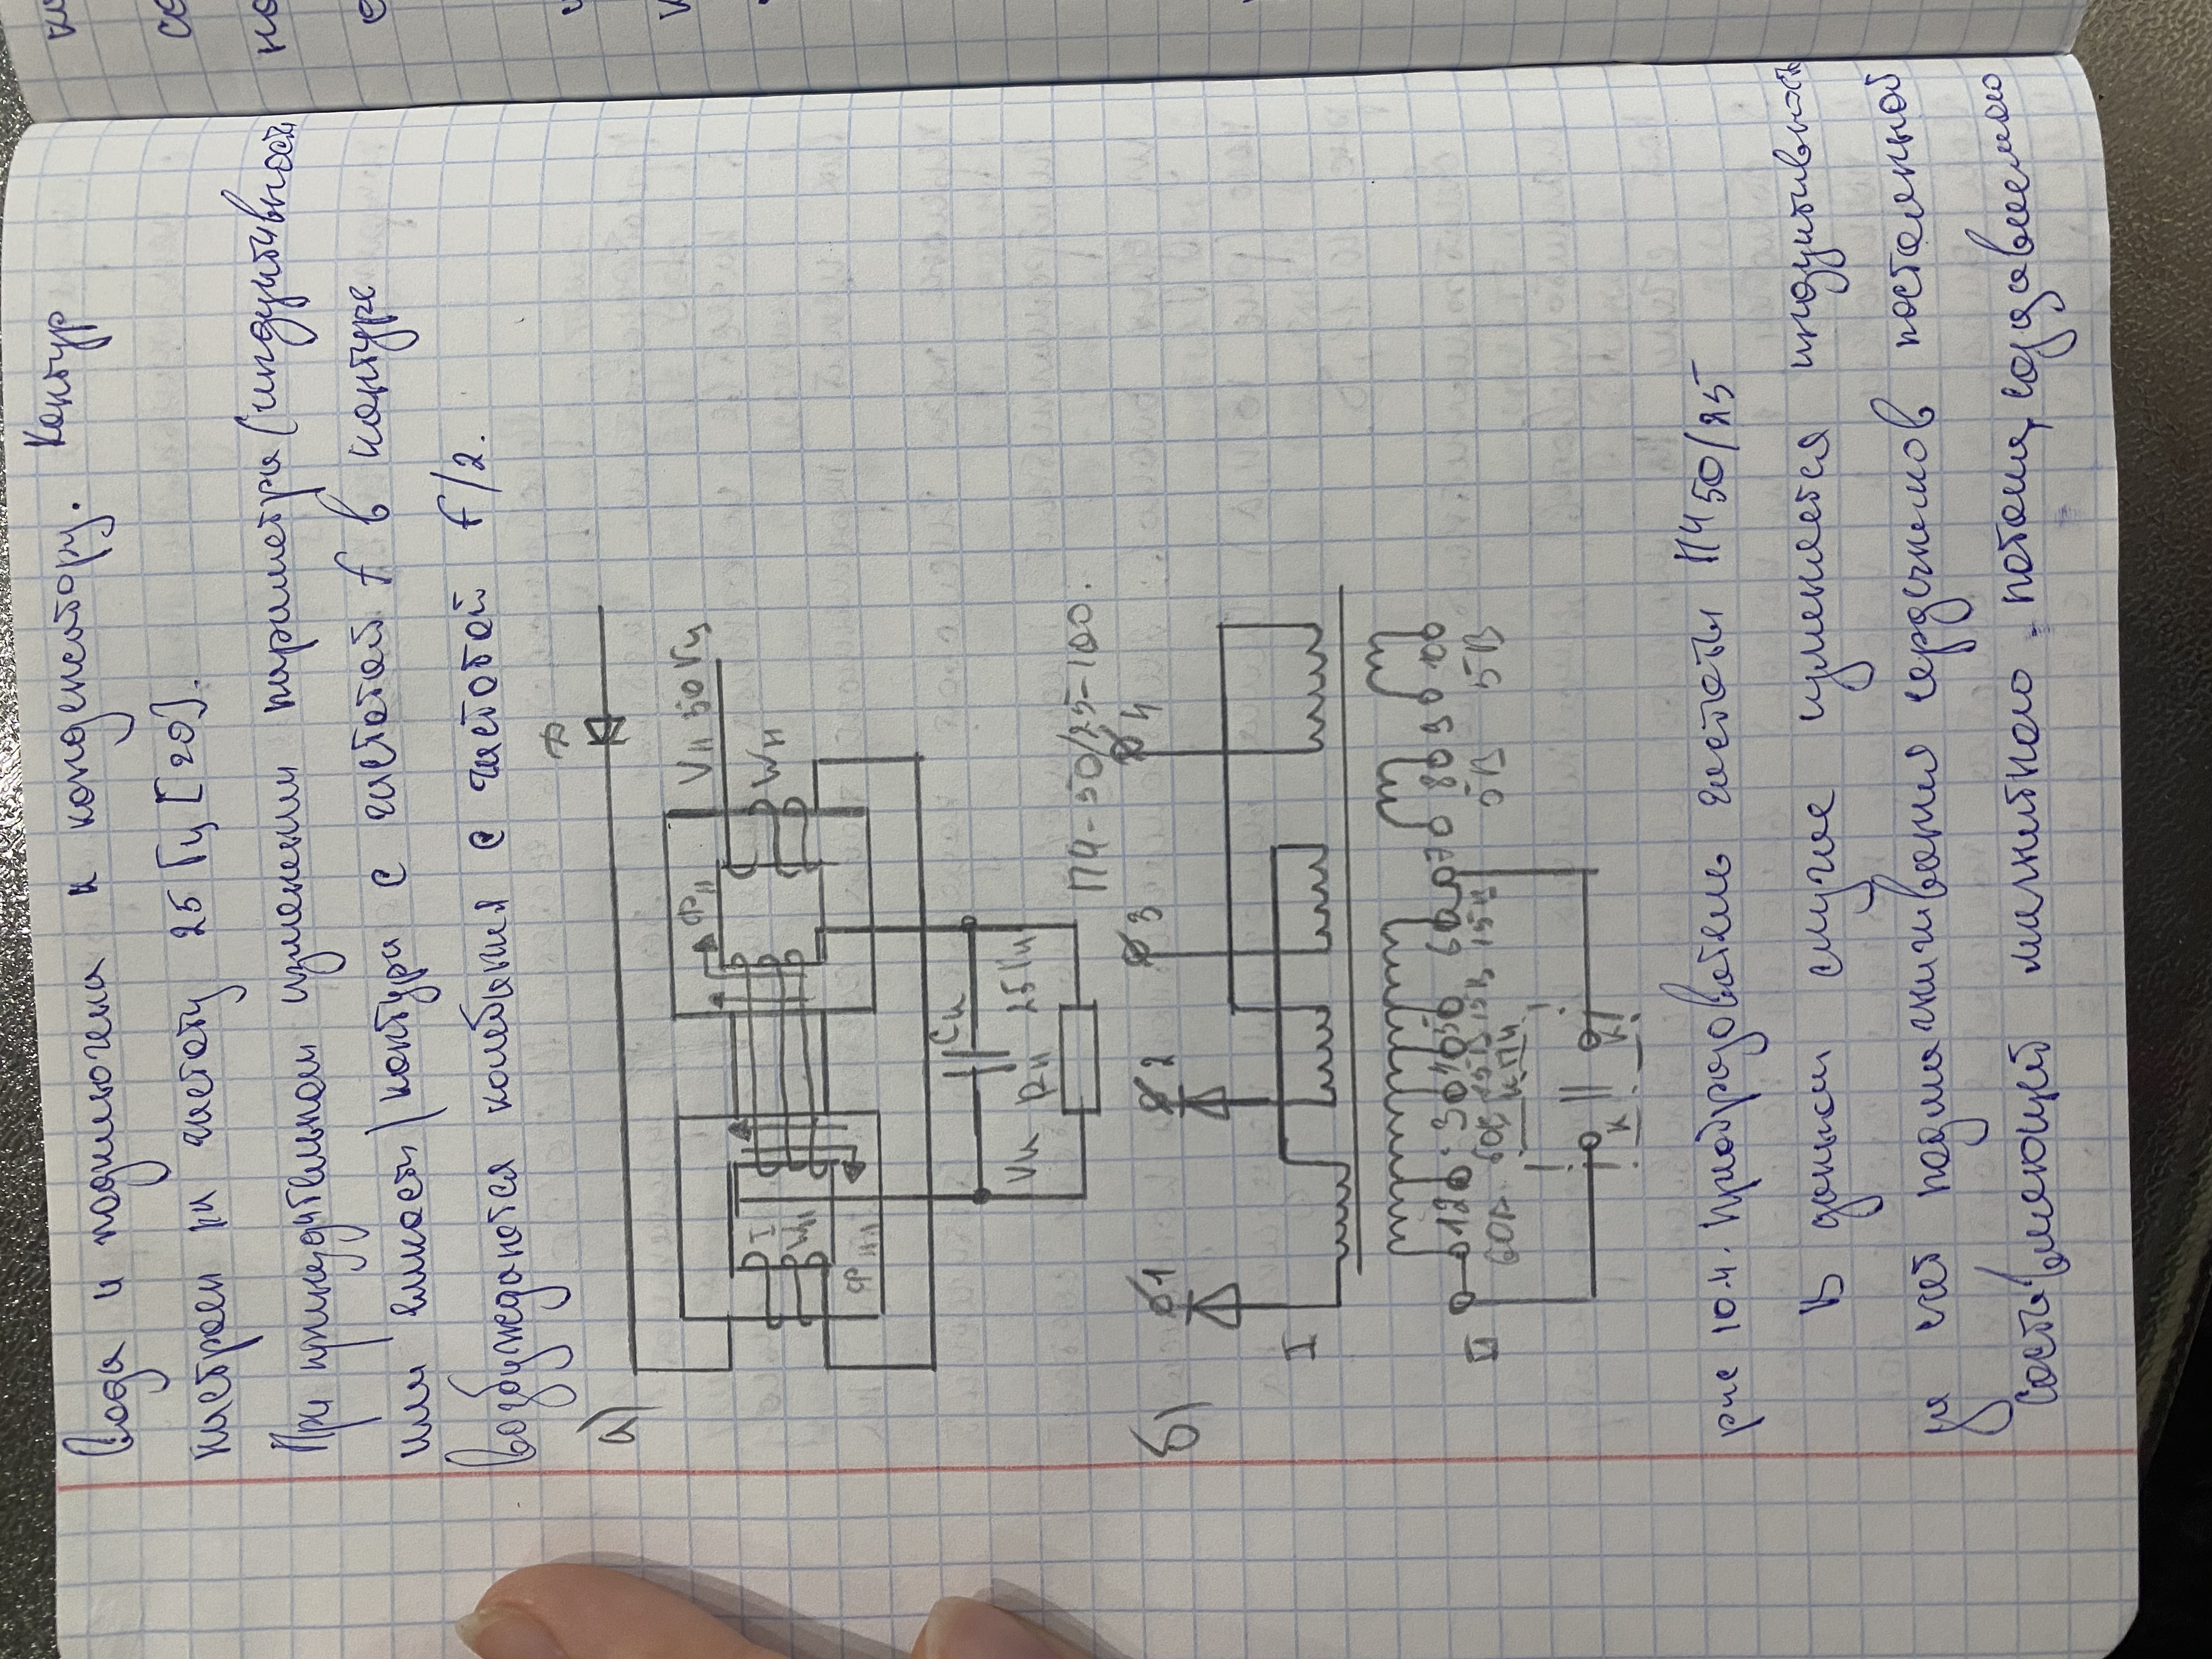 вода и подключена к конденсатору. Контур
настроен на частоту 25 Гц [20].
При принудительном изменении параметра (индуктивност
или емкости) контура с частотой f в контуре
возбуждаются колебания с частотой f/2.
а)
Д
Uн 50 Гц
Фн
Wн
I
Wн
Фн1
Cк
25 Гц
Uк
Rн
ПЧ-50/25-100.
б)
1 2 3 4
I
II
1 2 3 4 5 6 7 8 9 10
60В 60В 15В 15В 15В 5В 5В
к ПЧ
К К1
рис 10.4. Преобразователь частоты ПЧ 50/25
В данном случае изменяется индуктивность
за счет подмагничивания сердечников постоянной
составляющей магнитного потока, создаваемого